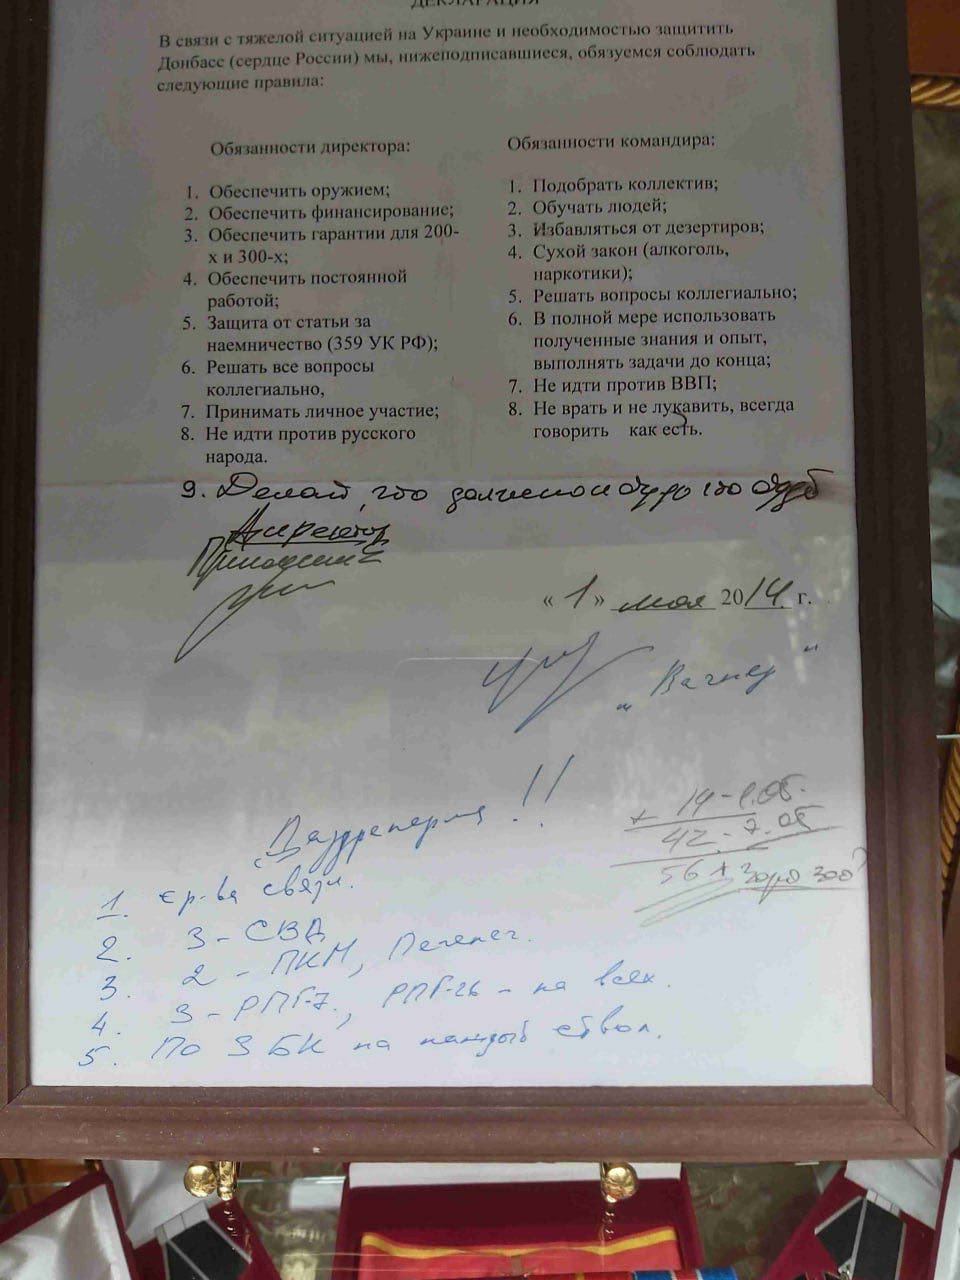 ДЕКЛАРАЦИЯ
В связи с тяжелой ситуацией на Украине и необходимостью защитить
Донбасс (сердце России) мы, нижеподписавшиеся, обязуемся соблюдать
следующие правила:
Обязанности директора:
1. Обеспечить оружием;
2. Обеспечить финансирование;
3. Обеспечить гарантии для 200-
х и 300-х;
4. Обеспечить постоянной
работой;
5. Защита от статьи за
наемничество (359 УК РФ);
6. Решать все вопросы
коллегиально,
7. Принимать личное участие;
8. Не идти против русского
народа.
Обязанности командира:
1. Подобрать коллектив;
2. Обучать людей;
3. Избавляться от дезертиров;
4. Сухой закон (алкоголь,
наркотики);
5. Решать вопросы коллегиально;
6. В полной мере использовать
полученные знания и опыт,
выполнять задачи до конца;
7. Не идти против ВВП;
8. Не врать и не лукавить, всегда
говорить как есть.
9. Делай, что должно и будь что будет
Директор
Пригожин
« 1 » мая 2014 г.
„Вагнер"
14 - 1.05.
+ 42 - 7.05
56
!!
1. ср-ва связи.
2. 3 - СВД
3. 2 - ПКМ, Печенег.
4. 3 - РПГ-7, РПГ-26 - на всех.
5. По 3 БК на каждый ствол.